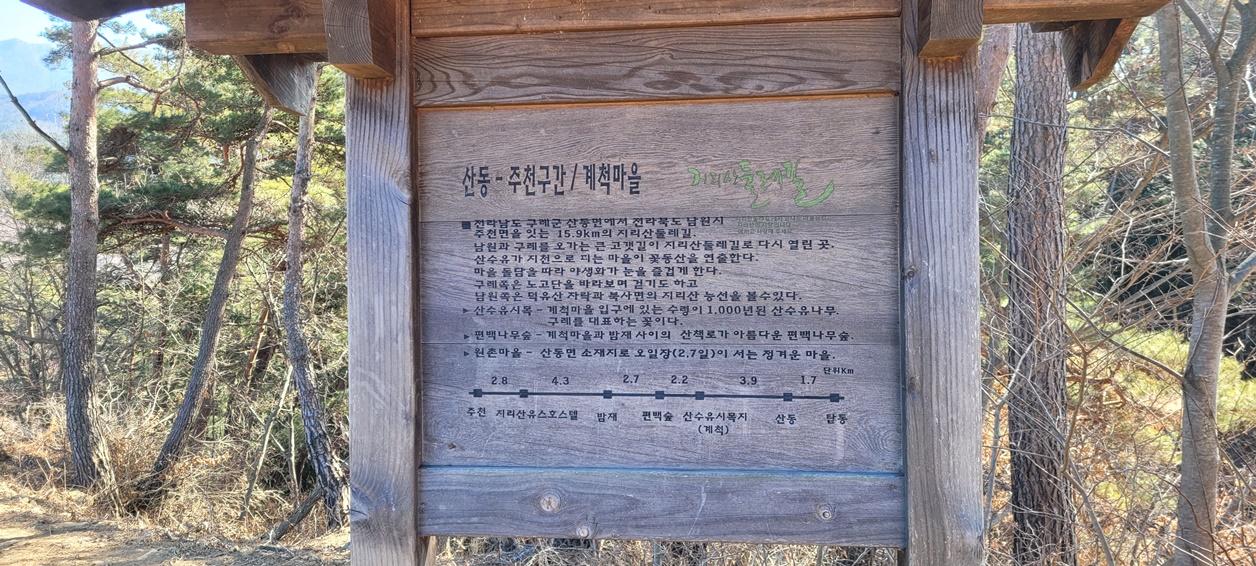 산동 - 주천구간 / 계척마을
지리산둘레길
■ 전라남도 구례군 산동면에서 전라북도 남원시
주천면을 잇는 15.9km의 지리산둘레길.
남원과 구례를 오가는 큰 고갯길이 지리산둘레길로 다시 열린 곳.
산수유가 지천으로 피는 마을이 꽃동산을 연출한다.
마을 돌담을 따라 야생화가 눈을 즐겁게 한다.
구례쪽은 노고단을 바라보며 걷기도 하고
남원쪽은 덕유산 자락과 북사면의 지리산 능선을 볼수있다.
▶ 산수유시목 - 계척마을 입구에 있는 수령이 1,000년된 산수유나무.
구례를 대표하는 꽃이다.
▶ 편백나무숲 - 계척마을과 밤재 사이의 산책로가 아름다운 편백나무숲.
▶ 원촌마을 - 산동면 소재지로 오일장(2.7일)이 서는 정겨운 마을.
단위Km
2.8 4.3 2.7 2.2 3.9 1.7
주천 지리산유스호스텔 밤재 편백숲 산수유시목지 산동 탑동
(계척)